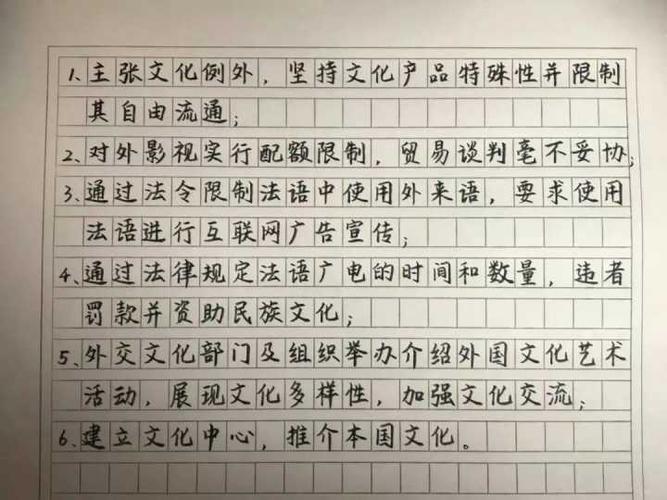 1、主张文化例外，坚持文化产品特殊性并限制
其自由流通；
2、对外影视实行配额限制，贸易谈判毫不妥协；
3、通过法令限制法语中使用外来语，要求使用
法语进行互联网广告宣传；
4、通过法律规定法语广电的时间和数量，违者
罚款并资助民族文化；
5、外交文化部门及组织举办介绍外国文化艺术
活动，展现文化多样性，加强文化交流；
6、建立文化中心，推介本国文化。